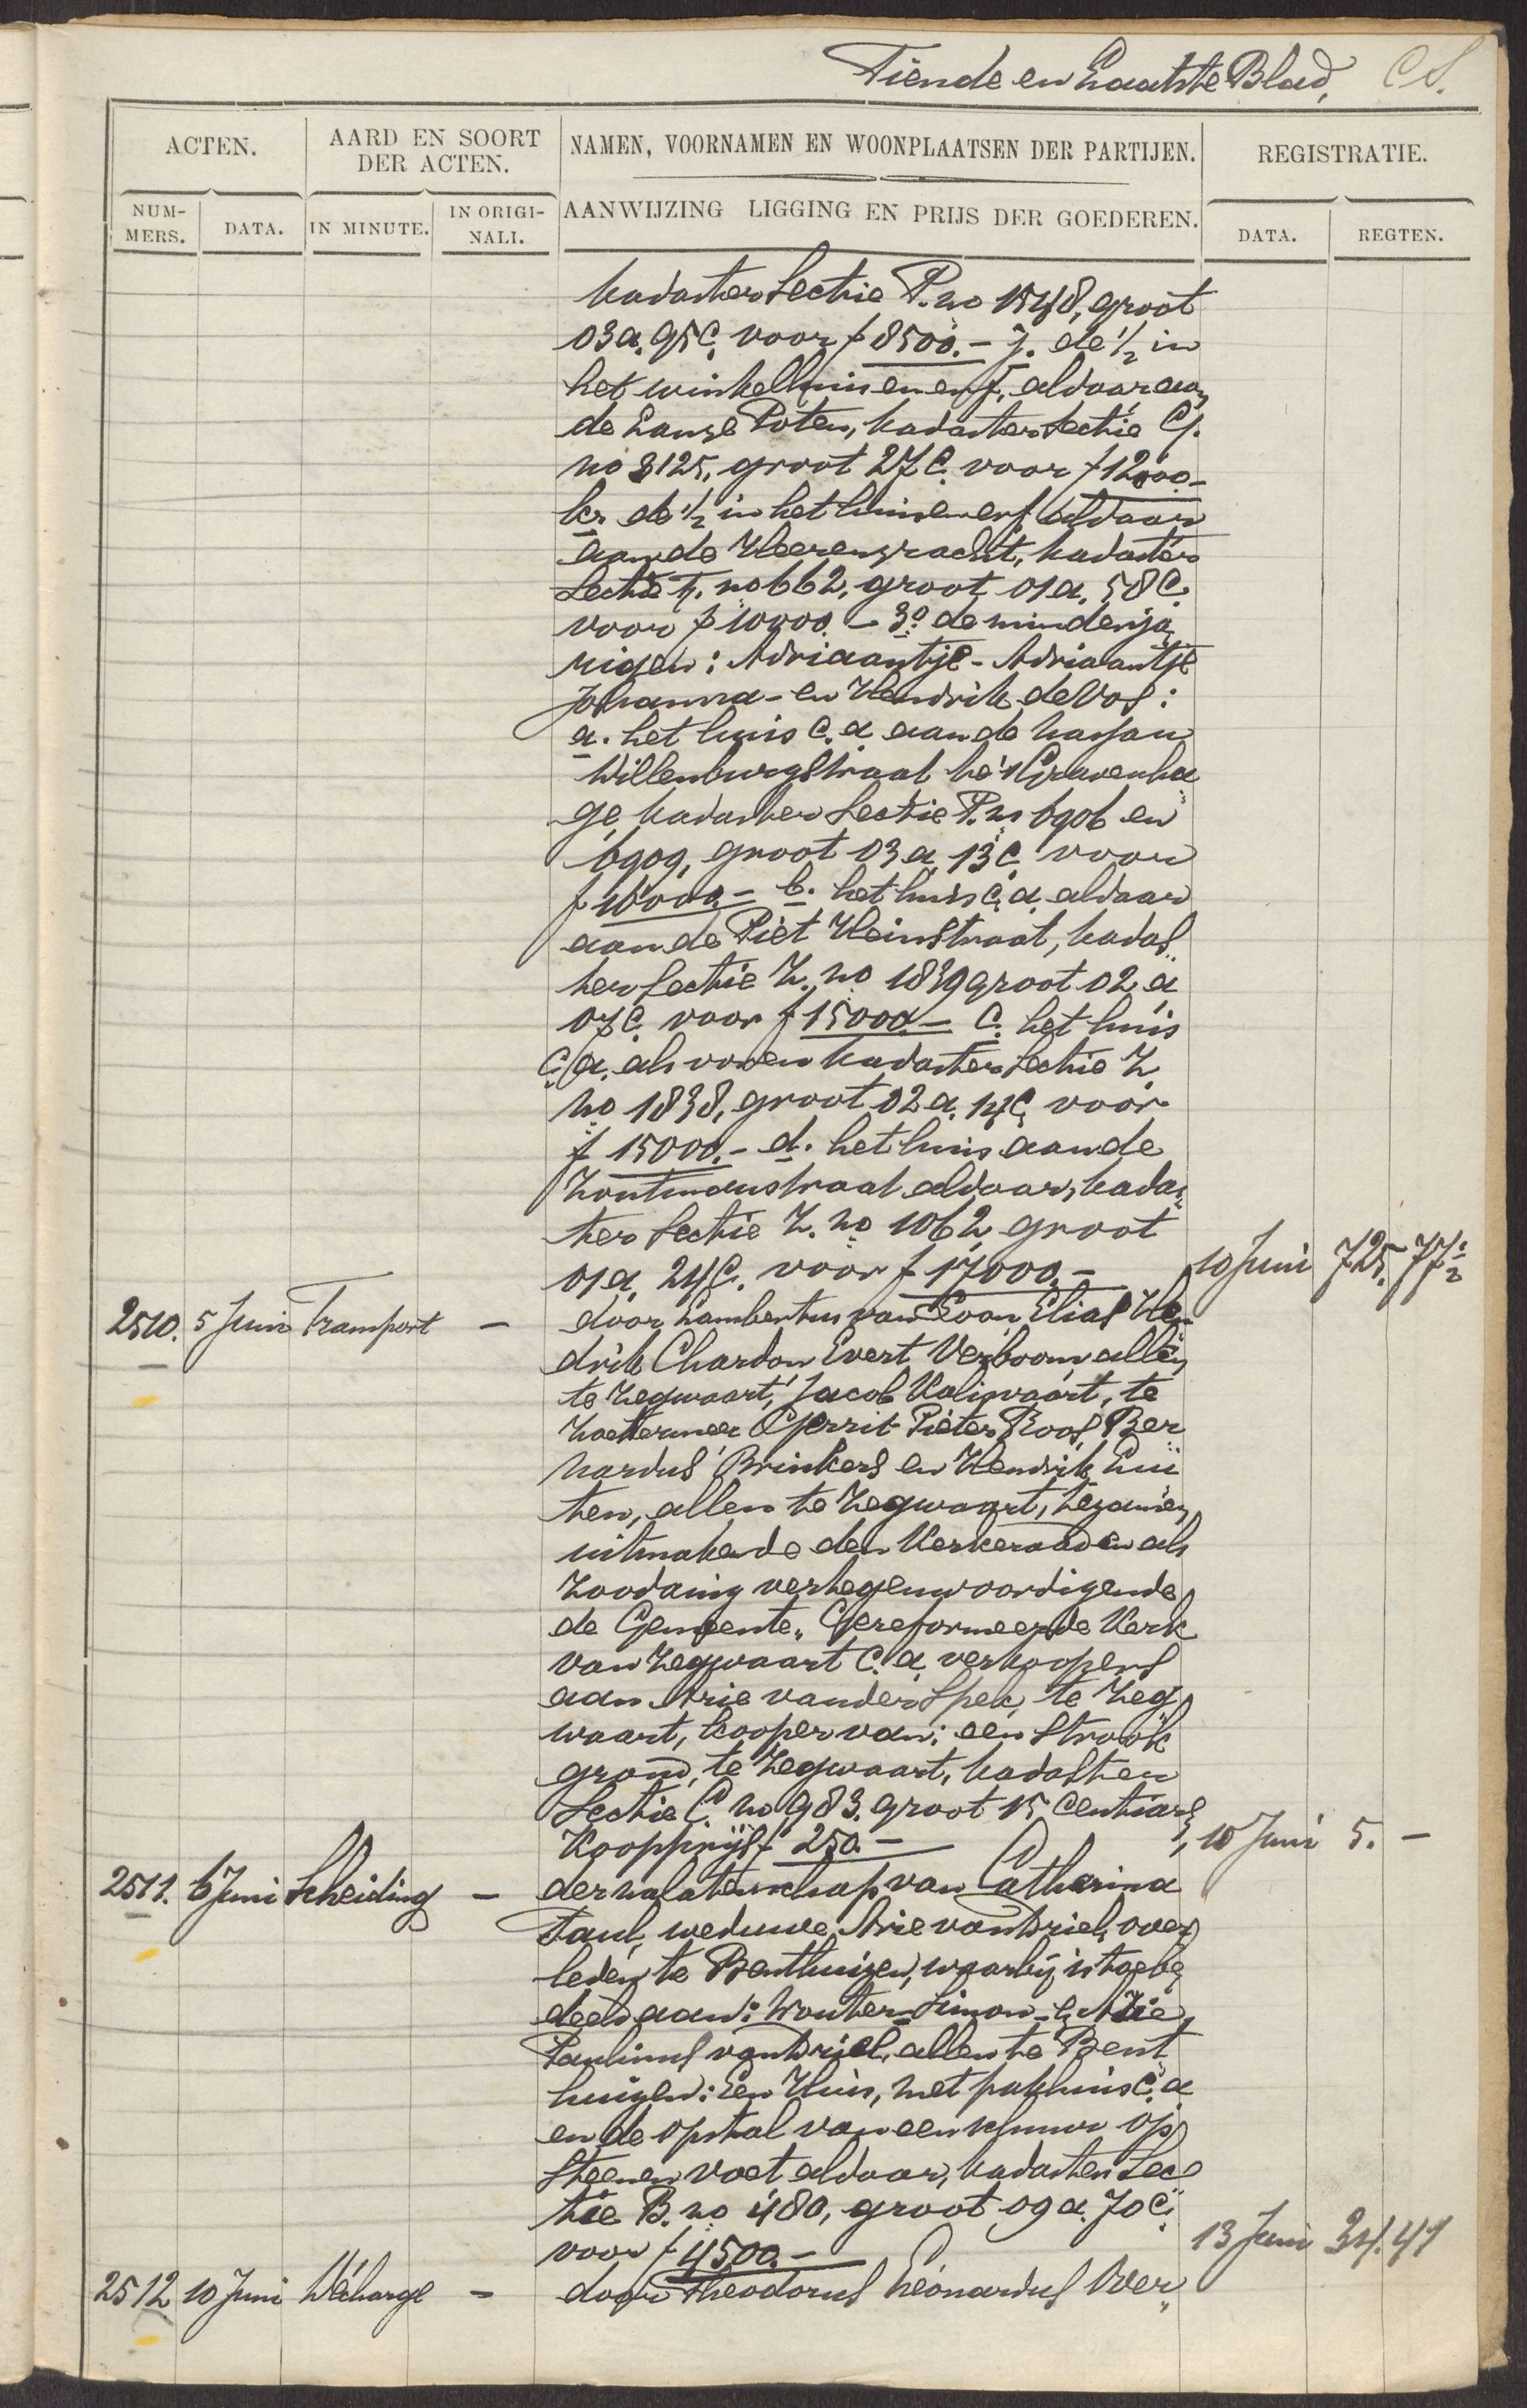 Tiende en Laatste Blad, CS.
ACTEN.
AARD EN SOORT DER ACTEN.
NAMEN, VOORNAMEN EN WOONPLAATSEN DER PARTIJEN.
REGISTRATIE.
NUM-MERS.
DATA.
IN MINUTE.
IN ORIGI-NALI.
AANWIJZING LIGGING EN PRIJS DER GOEDEREN.
DATA.
REGTEN.
kadaster Sectie P. no 1548, groot
03 a. 95 c. voor f 8500.- j. de 1/2 in
het winkelhuis en erf, aldaar aan
de Lange Poten, kadaster Sectie G.
no 3125, groot 27 c. voor f 12000.-
k. de 1/2 in het huis en erf aldaar
aan de Heerengracht, kadaster
Sectie no 662, groot 01 a. 58 c.
voor f 10000.- 3o de minderja„
rigen: Adriaantje - Adriaantje
Johanna - en Hendrik de Vos:
a. het huis c.a. aan de Nassau
Dillenburgstraat te 's Gravenha
ge, kadaster Sectie P. no 6906 en
6909, groot 03 a 13 c. voor
f 16000.- b. het huis c.a. aldaar
aan de Piet Heinstraat, kadas„
ter Sectie Z. no 1839 groot 02 a
07 c. voor f 15000.- c. het huis
c.a. als voren kadaster Sectie Z.
no 1838, groot 02 a. 14 c. voor
f 15000.- d. het huis aan de
Zoutmanstraat aldaar, kadas„
ter Sectie Z. no 1062 groot
01 a. 24 c. voor f 17000.- 10 Juni 725.77½
2510. 5 Juni Transport - door Lambertus van Loon, Elias Hen„
drik Chardon Evert Verboom allen
te Zegwaart, Jacob Kaliswaart, te
Zoetermeer Gerrit Pieter Roos, Ber„
nardus Brinkers en Hendrik Lui„
ten, allen te Zegwaart, tezamen
uitmakende den Kerkeraad en als
zoodanig vertegenwoordigende
de Gemeente „Gereformeerde Kerk
van Zegwaart c.a. verkoopers
aan Arie van der Spek, te Zeg„
waart, kooper van: een strook
grond, te Zegwaart, kadaster
Sectie C. no 983. groot 15 centiare
Koopprijs f 250.- 10 Juni 5.-
2511. 6 Juni Scheiding - der nalatenschap van Catharina
Paul, weduwe Arie van Driel, over„
leden te Benthuizen, waarbij is toebe„
deeld aan: Wouter - Simon - & Arie
Paulinus van Driel, allen te Bent„
huizen: Een Huis, met pakhuis c.a.
en de opstal van een schuur op
steenen voet aldaar, kadaster Sec„
tie B. no 480, groot 09 a. 70 c.
voor f 4500.- 13 Juni 34.41
2512 10 Juni Décharge - door Theodorus Leonardus Over„